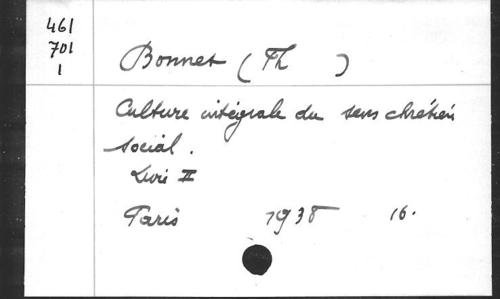 461
701
1
Bonnet (Th )
Culture intégrale du sens chrétien
social.
Livre II
Paris 1938 16.